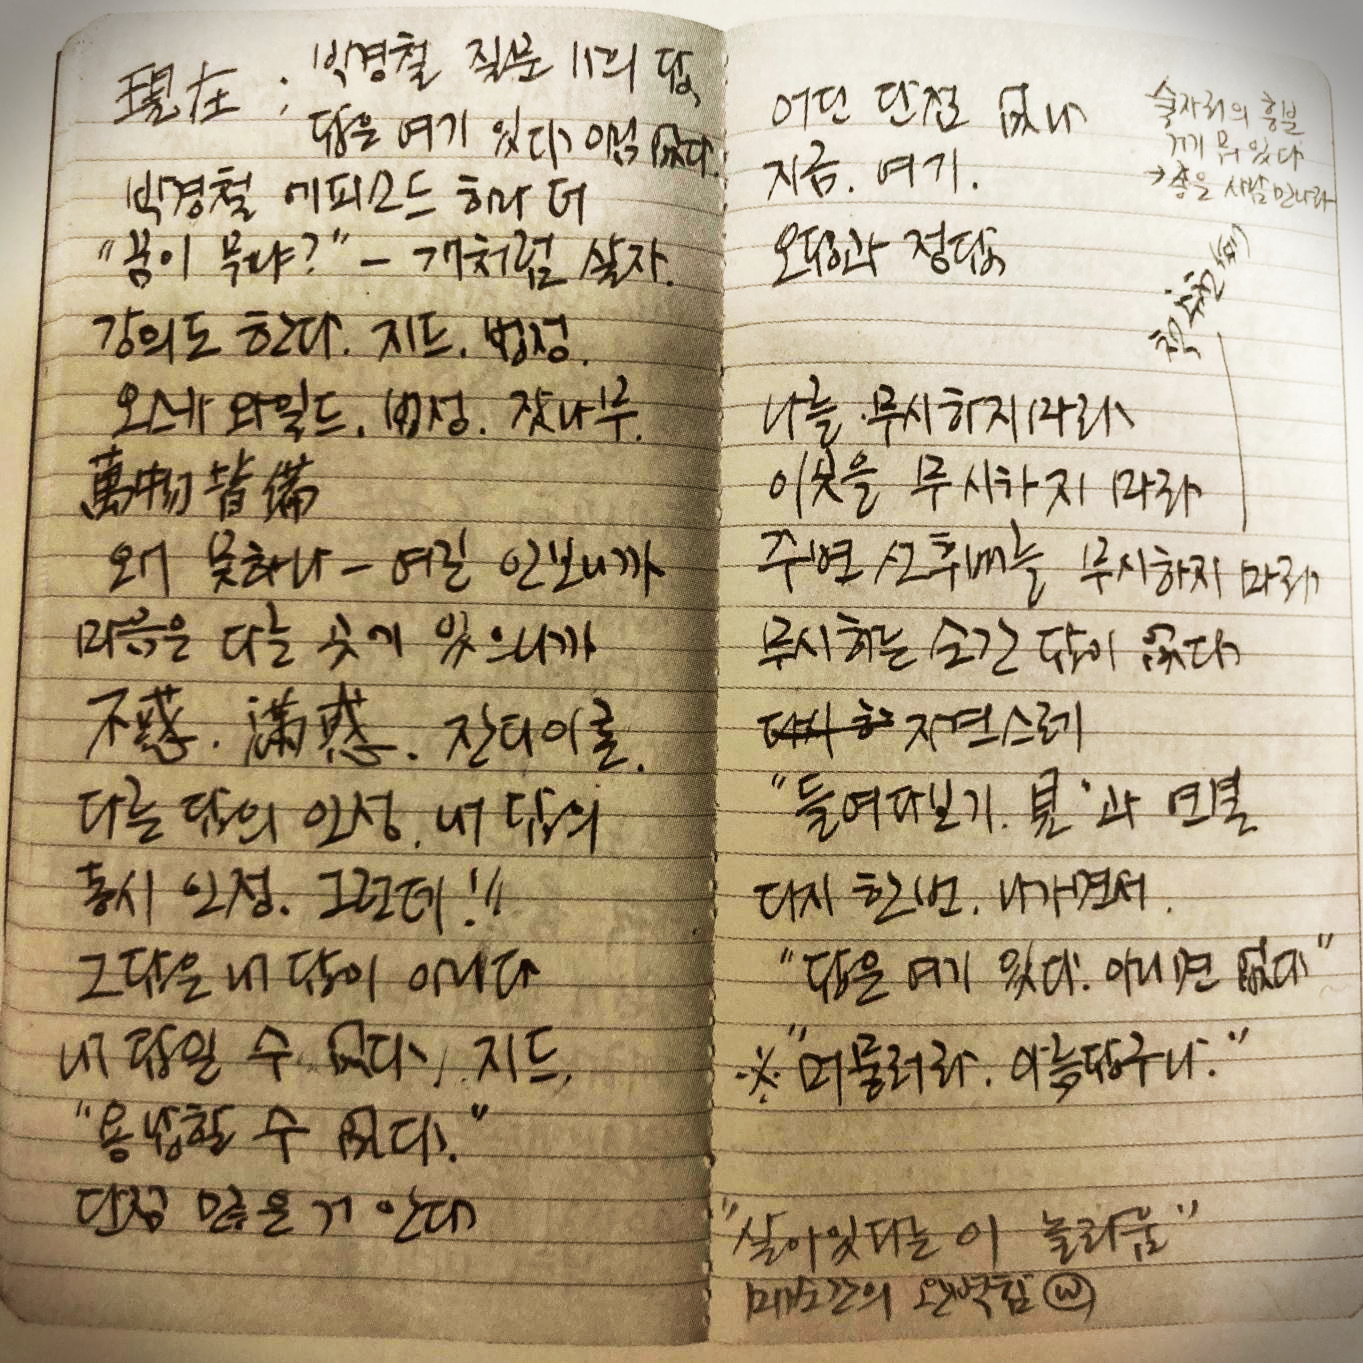 現在 : 박경철 질문 나의 답,
답은 여기 있다 아님 없다.
박경철 에피소드 하나 더
"꿈이 뭐냐?" – 개처럼 살자.
강의도 한다. 지드. 법정.
오스카 와일드. 법정. 잣나무.
萬物皆備
왜 못하나 – 여길 안보니까
마음은 다른 곳에 있으니까
不惑. 滿惑. 잔디이론.
다른 답의 인정. 내 답의
동시 인정. 그런데!!
그답은 내 답이 아니다
내 답일 수 없다. 지드.
"용납할 수 없다."
단점 많은 거 안다
어떤 단점 없나
지금. 여기.
오답과 정답
술자리의 흥분
거기 뭐 있다
→ 좋은 사람 만나라
책 추천
나를 무시하지마라
이곳을 무시하지 마라
주변 선후배를 무시하지 마라
무시하는 순간 답이 없다
자연스레
"들여다보기. 見"과 연결
다시 한번. 나가면서.
"답은 여기 있다. 아니면 없다"
※ "머물러라. 아름답구나."
"살아있다는 이 놀라움"
매순간의 완벽함 w